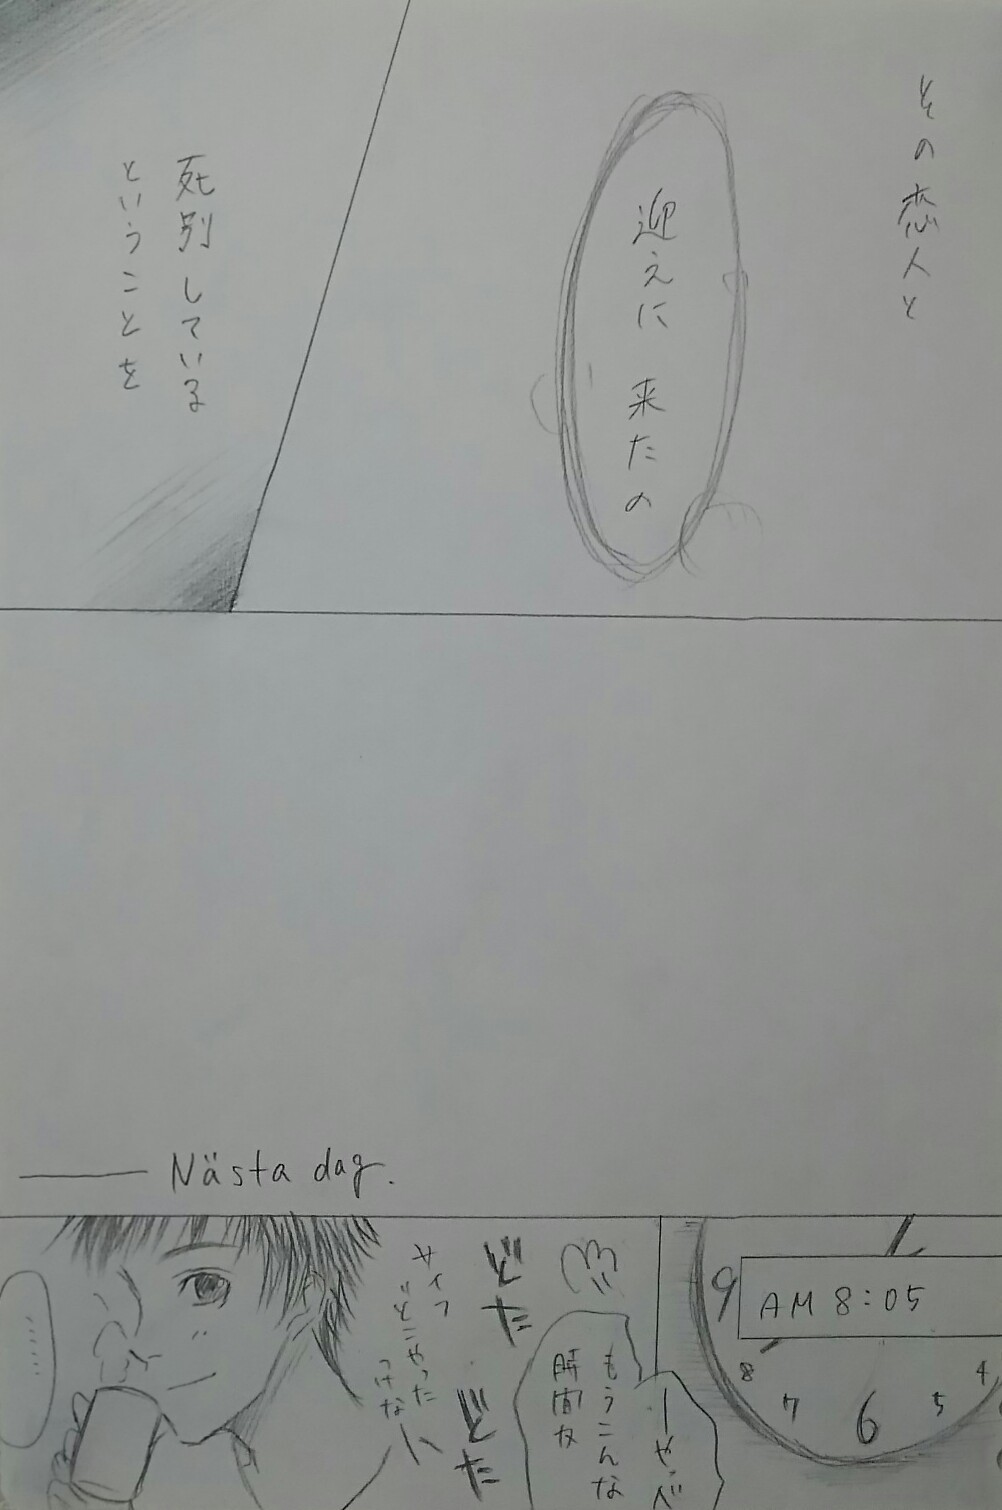 その恋人と
迎えに 来たの
死別している
ということを
Nästa dag.
AM 8:05
9
8
7
6
5
4
ーやっべ
もうこんな
時間だ
どた
どた
サイフ
どこやった
っけなー
……